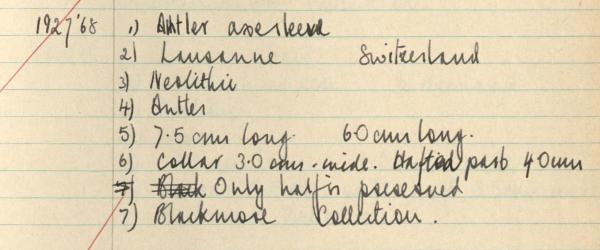 1927'68 1) Antler axesleeve
2) Lausanne Switzerland
3) Neolithic
4) Antler
5) 7.5 cms long. 6.0 cms long.
6) Collar 3.0 cms. wide. Hafted part 4.0 cms
7) Black Only half is preserved
7) Blackmore Collection.